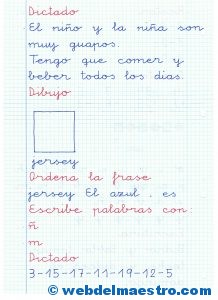 Dictado
El niño y la niña son
muy guapos.
Tengo que comer y
beber todos los días.
Dibujo
jersey
Ordena la frase
jersey El azul . es
Escribe palabras con:
ñ
m
Dictado
3-15-17-11-19-12-5
© webdelmaestro.com